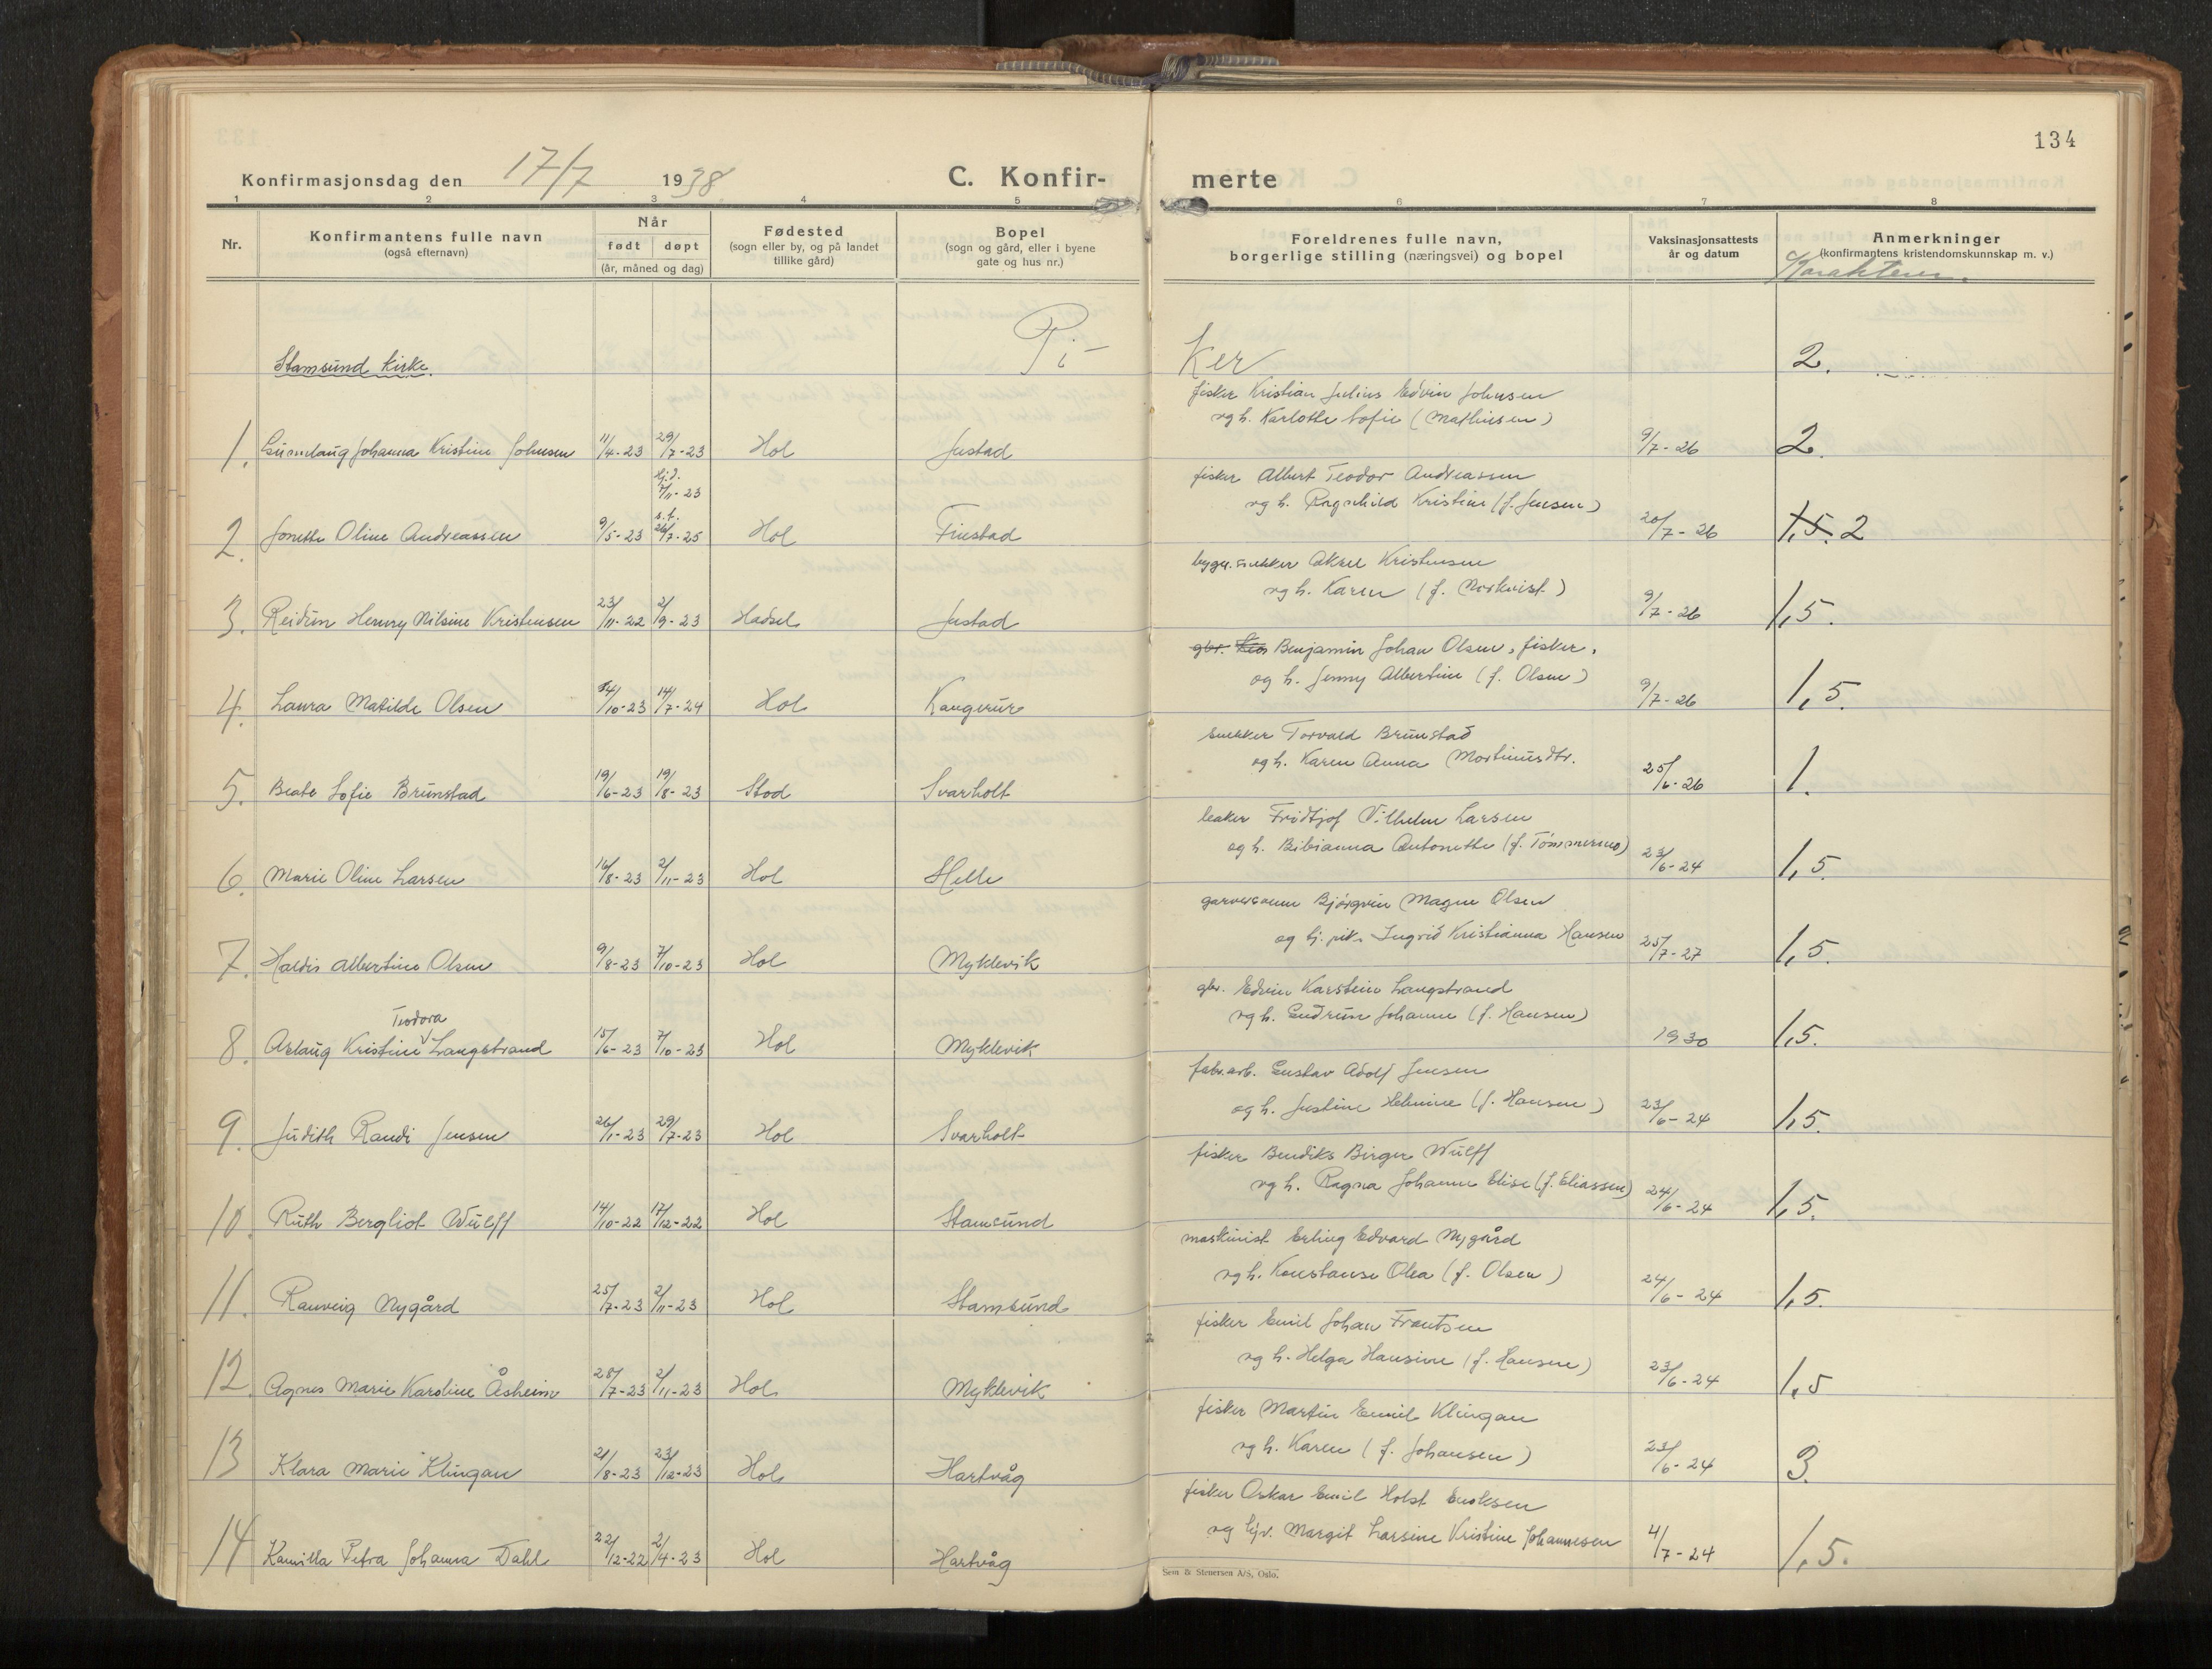 134
Konfirmasjonsdag den 17/7 1938.
C. Konfir-
merte
1 2 3 4 5 6 7 8
Nr.
Konfirmantens fulle navn
(også efternavn)
Når
født døpt
(år, måned og dag)
Fødested
(sogn eller by, og på landet
tillike gård)
Bopel
(sogn og gård, eller i byene
gate og hus nr.)
Foreldrenes fulle navn,
borgerlige stilling (næringsvei) og bopel
Vaksinasjonsattests
år og datum
Anmerkninger
(konfirmantens kristendomskunnskap m. v.)
Karakteren.
Stamsund kirke. Pi- Ker 2.
fisker Kristian Julius Edvin Johnsen
og h. Karlotte Sofie (Mathisen)
1. Gunnlaug Johanna Kristine Johnsen 11/4-23 29/7-23 Hol Justad 9/7-26 2.
hj.d. 7/11-23
fisker Albert Teodor Andreassen
og h. Ragnhild Kristine (f. Jensen)
s.t.
2. Jonette Oline Andreassen 9/5-23 26/7-25 Hol Finstad 20/7-26 1,5. 2
bygn.snekker Aksel Kristensen
og h. Karen (f. Norkvist)
3. Reidun Henny Nilsine Kristensen 23/11-22 2/9-23 Hadsel Justad 9/7-26 1,5.
gbr. Benjamin Johan Olsen, fisker,
og h. Jenny Albertine (f. Olsen)
4. Laura Matilde Olsen 14/10-23 14/7-24 Hol Kangerur 9/7-26 1,5.
snekker Torvald Brunstad
og h. Karen Anna Mortinusdtr.
5. Beate Sofie Brunstad 19/6-23 19/8-23 Stod Svarholt 25/6-26 1.
leaker Fridtjof Vilhelm Larsen
og h. Bibianna Antonette (f. Tømmernes)
6. Marie Oline Larsen 16/8-23 2/11-23 Hol Helle 23/6-24 1,5.
garversvenn Bjørgvin Magne Olsen
og tj. pike Ingrid Kristianna Hansen
7. Haldis Albertine Olsen 9/8-23 7/10-23 Hol Myklevik 25/7-27 1,5.
gbr. Edvin Karstein Langstrand
og h. Gudrun Johanne (f. Hansen)
Teodora
8. Aslaug Kristine Langstrand 15/6-23 7/10-23 Hol Myklevik 1930 1,5.
fabr.arb. Gustav Adolf Jensen
og h. Justine Helmine (f. Hansen)
9. Judith Randi Jensen 26/1-23 29/7-23 Hol Svarholt 23/6-24 1,5.
fisker Bendiks Birger Wulff
og h. Ragna Johanne Elise (f. Eliassen)
10. Ruth Bergliot Wulff 14/10-22 17/12-22 Hol Stamsund 24/6-24 1,5.
maskinist Erling Edvard Nygård
og h. Konstanse Olea (f. Olsen)
11. Ranveig Nygård 25/7-23 2/11-23 Hol Stamsund 24/6-24 1,5.
fisker Emil Johan Frantsen
og h. Helga Hansine (f. Hansen)
12. Agnes Marie Karoline Åsheim 28/7-23 2/11-23 Hol Myklevik 23/6-24 1,5
fisker Martin Emil Klingan
og h. Karen (f. Johansen)
13 Klara Marie Klingan 21/8-23 23/12-23 Hol Hartvåg 23/6-24 3.
fisker Oskar Emil Holst Enoksen
og hjv. Margit Larsine Kristine Johannesen
14 Kamilla Petra Johanna Dahl 22/12-22 2/4-23 Hol Hartvåg 4/7-24 1,5.
Sem & Stenersen A/S, Oslo.